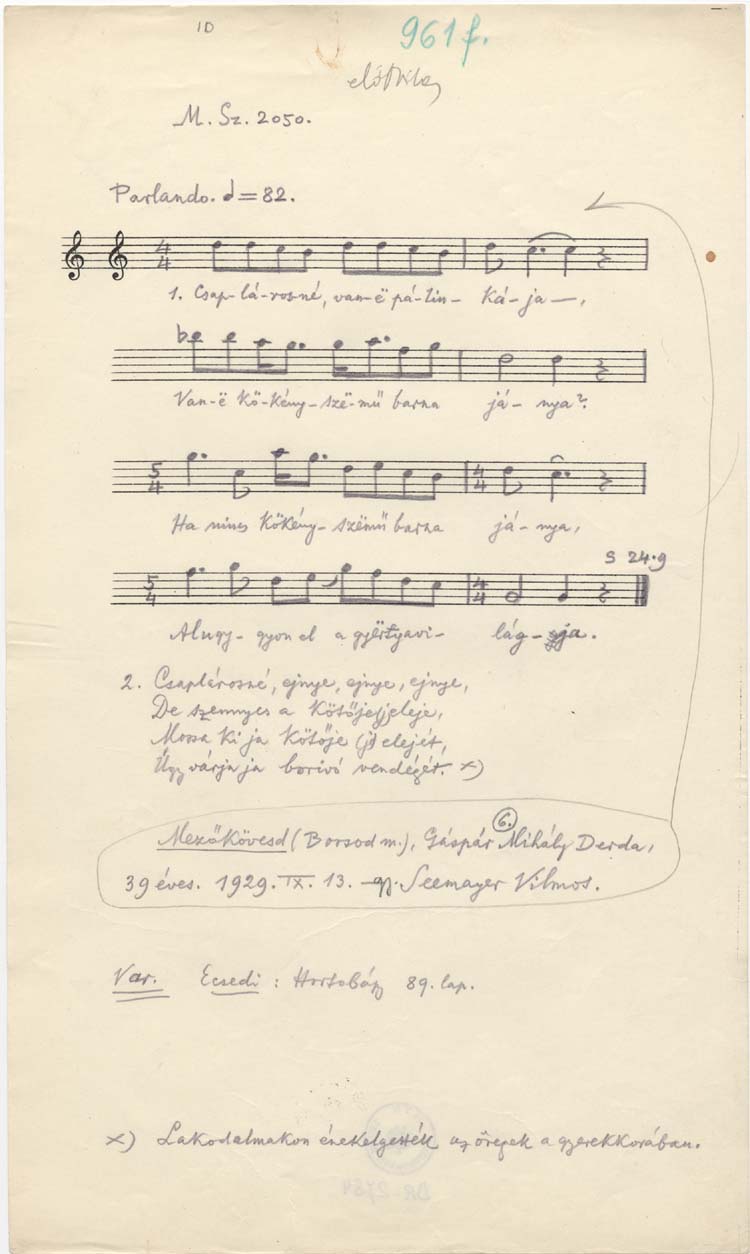 ID
961 f.
M. Sz. 2050.
Parlando. = 82.
4 4
1. Csap-lá-ros-né, van-ë pá-lin- ká-ja —,
Van-ë kö-kény-szë-mű barna já- nya?
5 4 4 4
Ha nincs kökény-szëmű barna já-nya,
S 24.9
5 4 4 4
Alugy- gyon el a gyërtyavi- lág- ja.
2. Csaplárosné, ejnye, ejnye, ejnye,
De szennyes a kötője eleje,
Mossa ki ja kötője (j)elejét,
Úgy várja ja borivó vendégét. x)
6.
Mezőkövesd (Borsod m.), Gáspár Mihály Derda,
39 éves. 1929. IX. 13. – gy. Seemayer Vilmos.
Var. Ecsedi : Hortobágy 89. lap.
x) Lakodalmakon énekelgették az öregek a gyerekkorában.